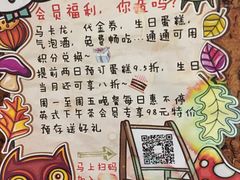 会员福利，你造吗？
马卡龙，代金券，生日蛋糕，
气泡酒，免费畅吃...通通可用
积分兑换~
提前两日预订蛋糕9.5折，生日
当月还可享八折~
周一至周五晚餐每日惠不停
英式下午茶会员专享98元特价
预存送好礼
马上扫码